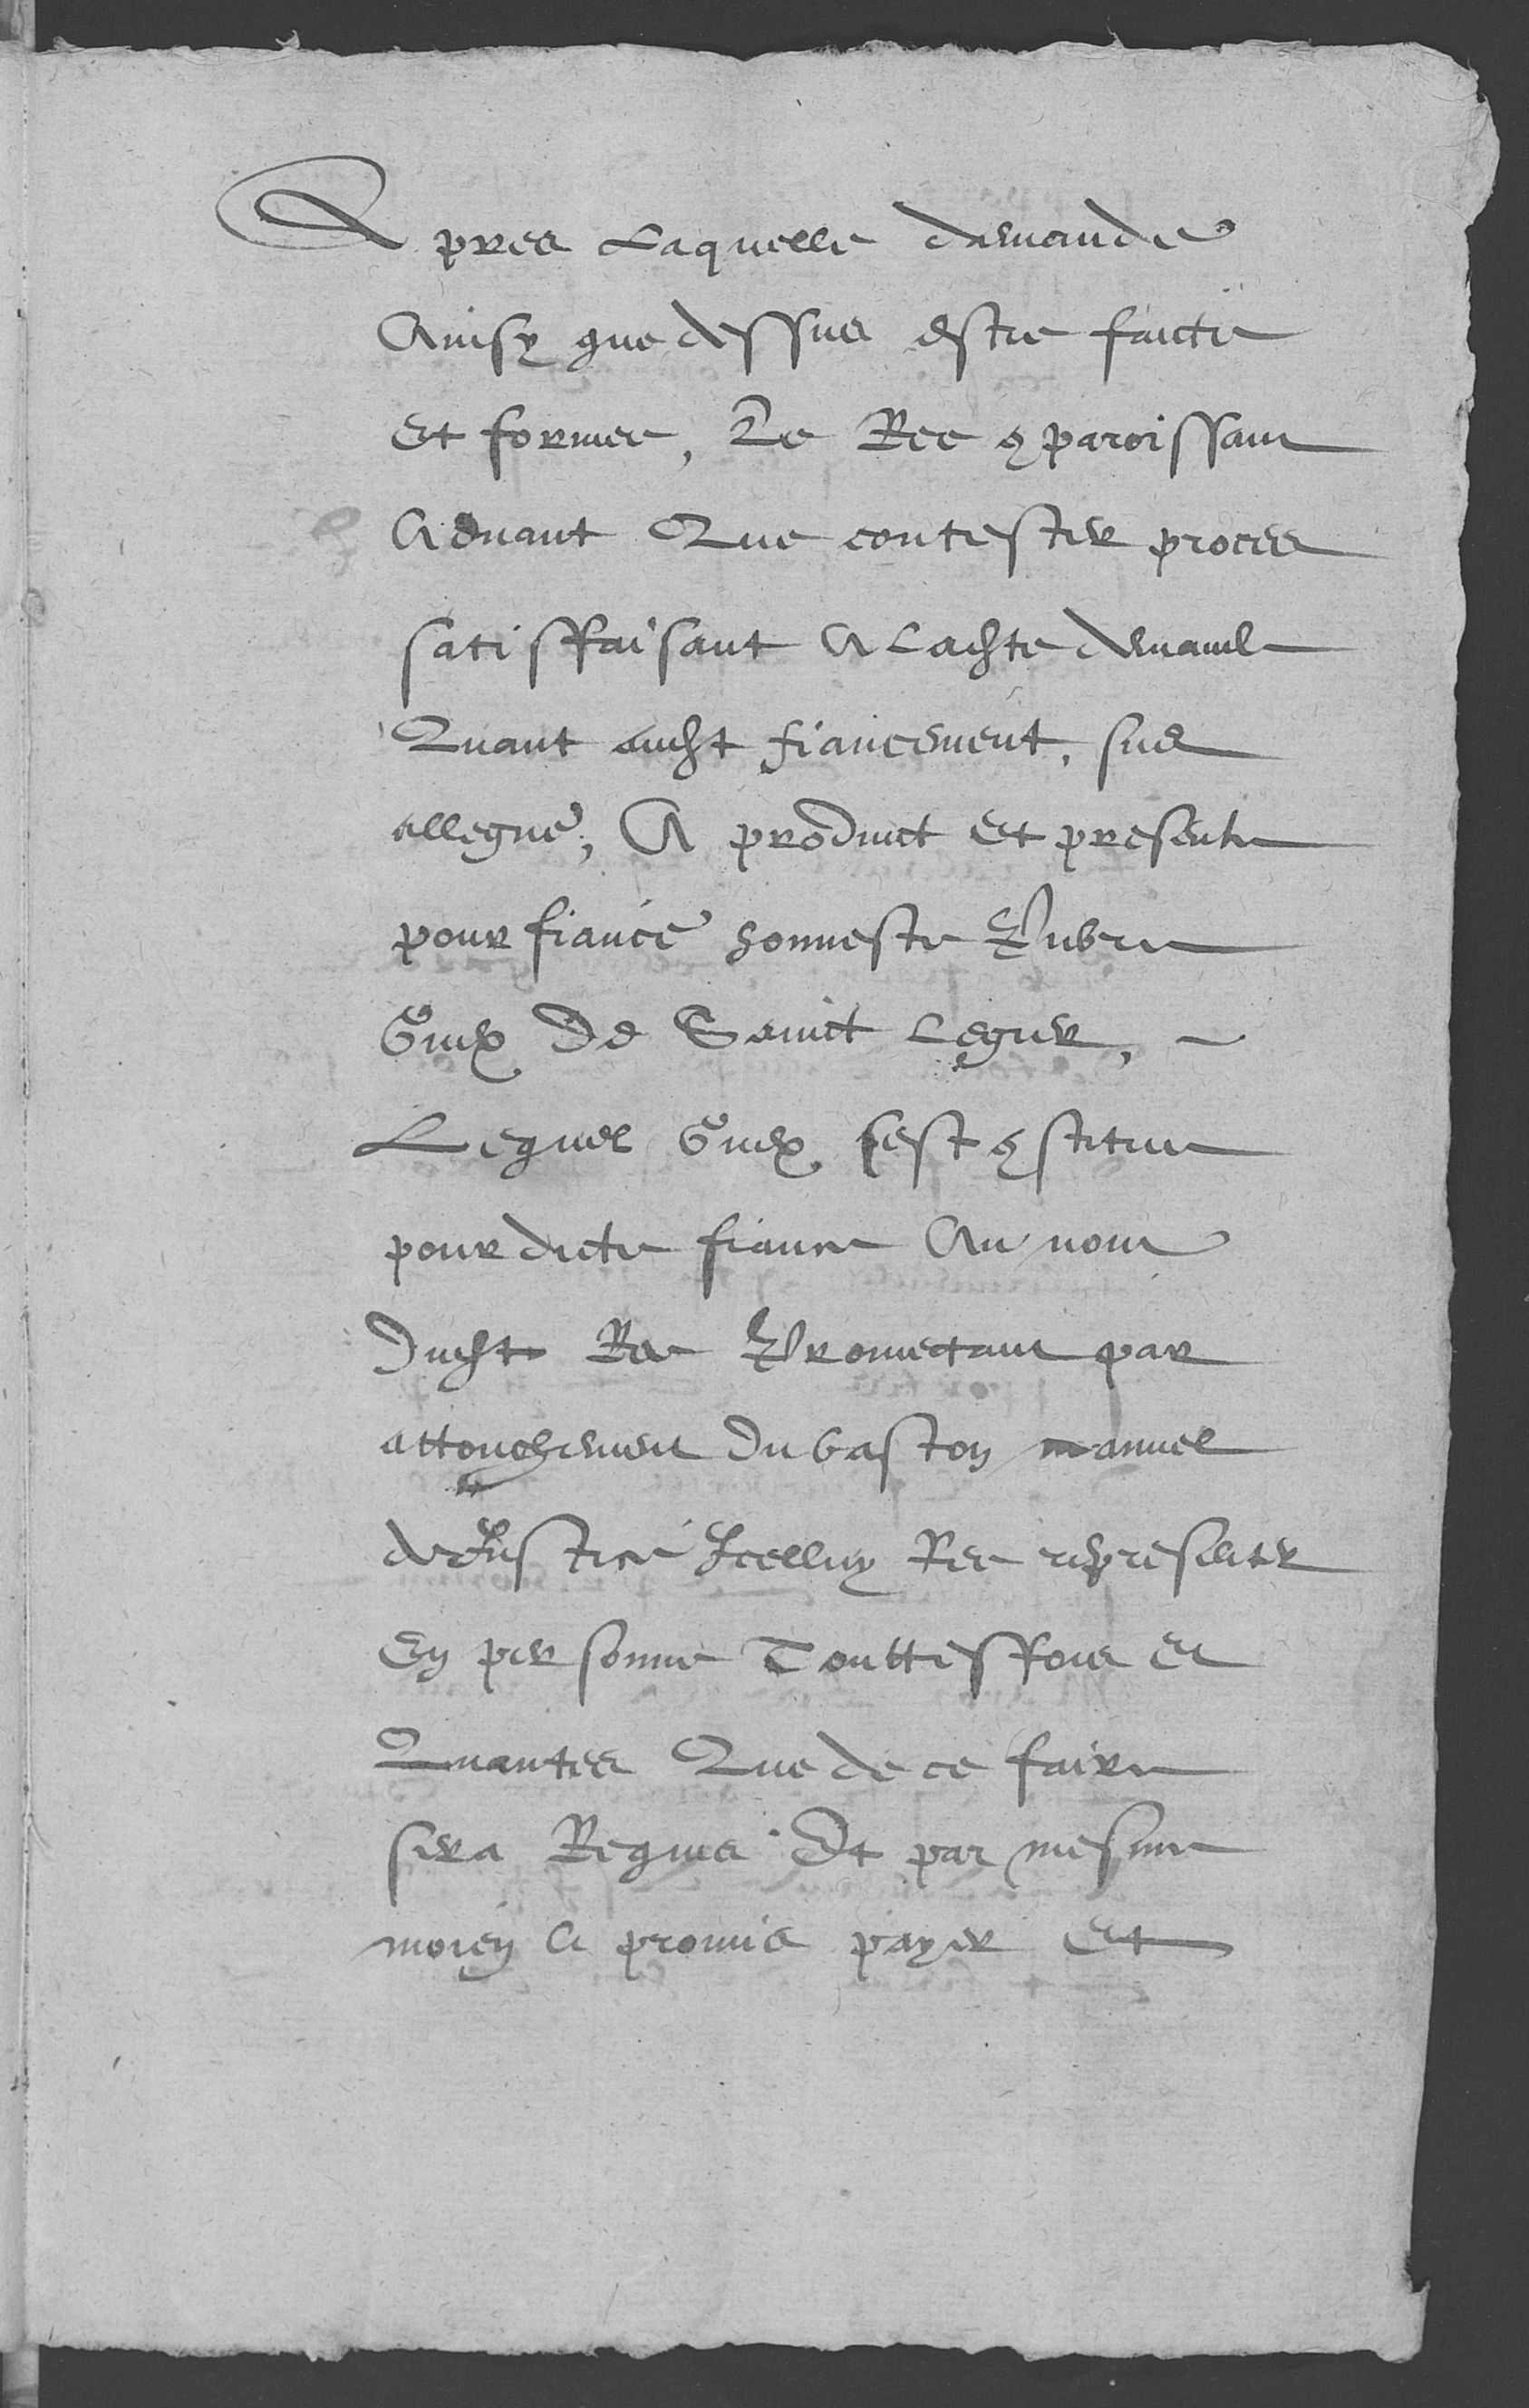 Apres Laquelle demande
Ainsy que dessus estre faicte
Et formee, Le Ree cparoissant
Aduant Que contester proces
satisffaisant A lachte demande
Quant aucht fiancement, sus
allegue, A produict Et presente
pour fiance honneste
Guex De Sainct Legier,
Lequel Guex sest cstitue
pour dicte fiance Au nom
Ducht Ree Promectant par
attouchement Du baston manuel
de Justice Icelluy Ree representer
En personne Touttesffois Et
Quantes Que de ce faire
sera Requis Et par mesme
moien A promis payer Et